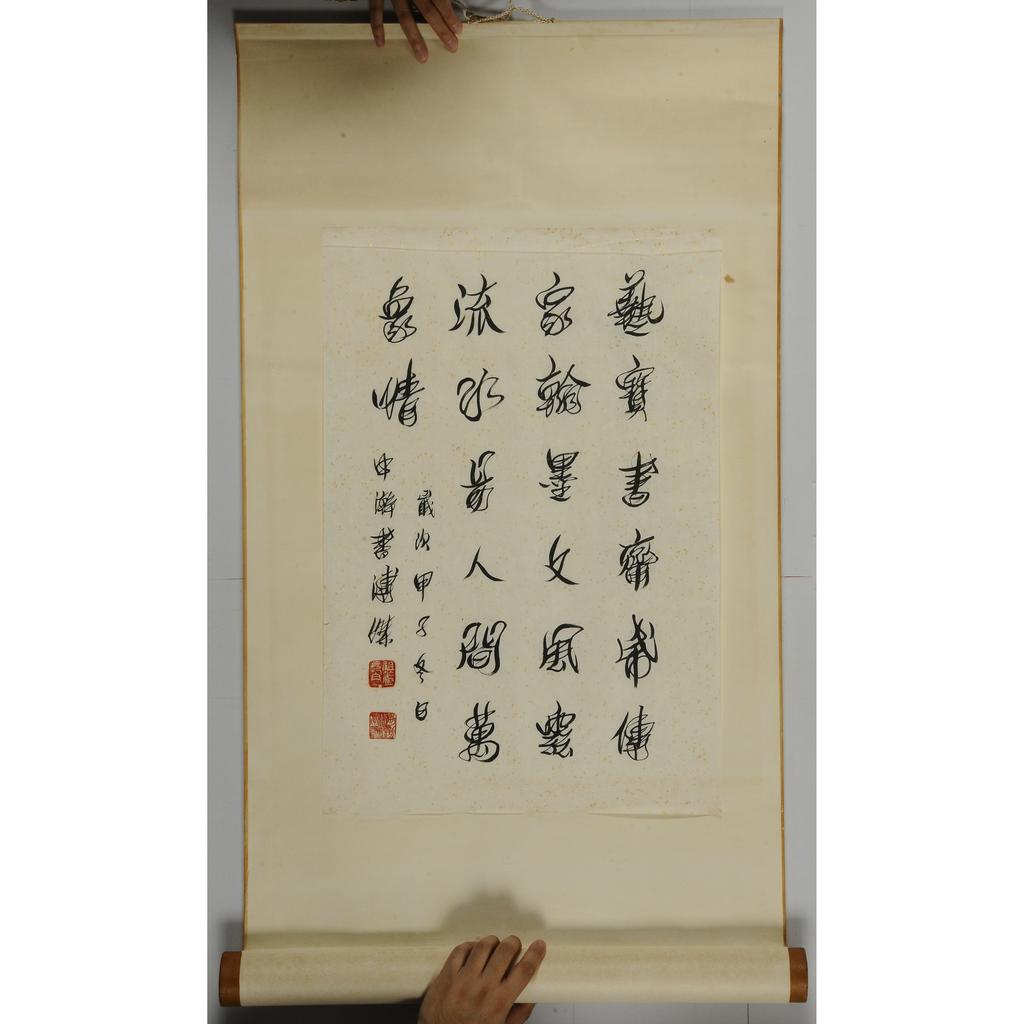 藝寶書齋常傳
家翰墨文風雲
流水是人間萬
象情
歲次甲子冬日
書溥傑